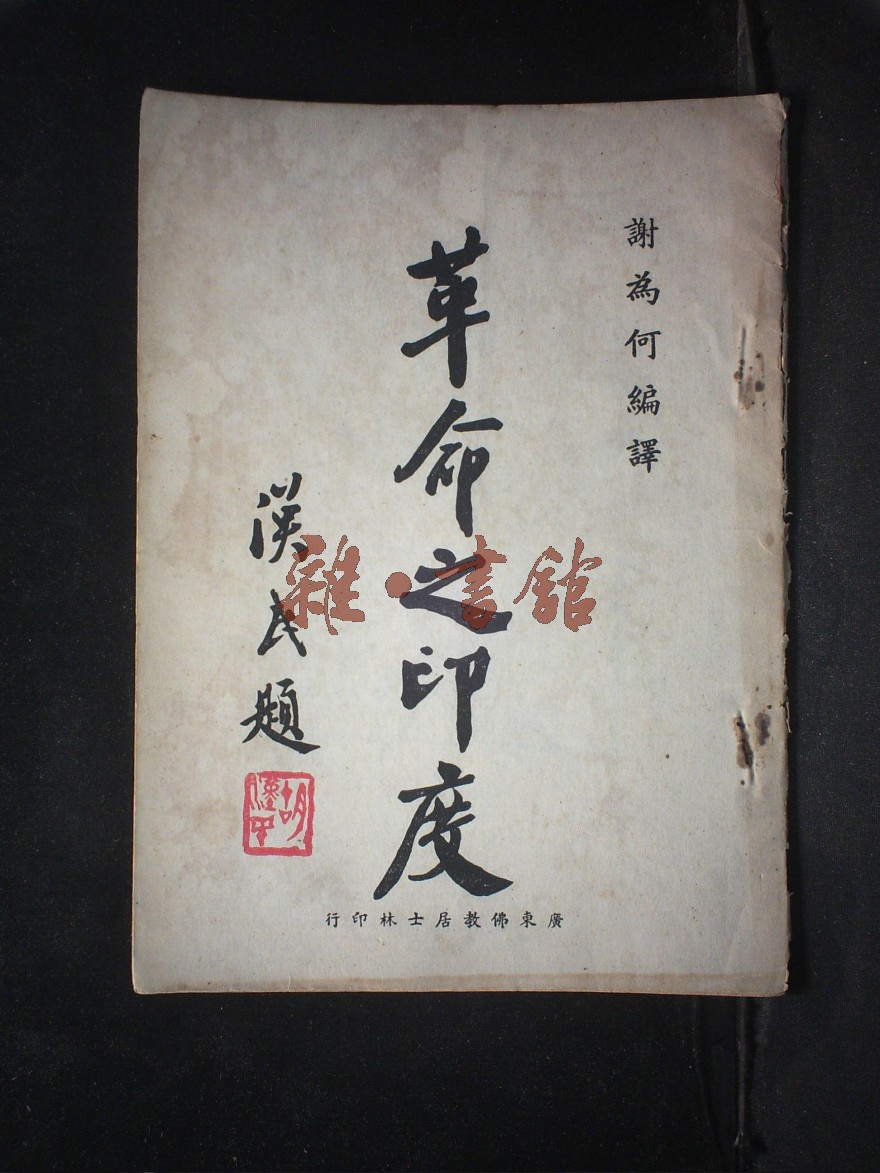 謝為何編譯
革命之印度
漢民題
胡漢民
廣東佛教居士林印行
雜·書館